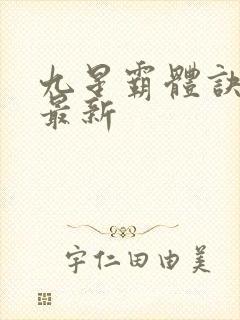 九星霸體訣
最新
宇仁田由美